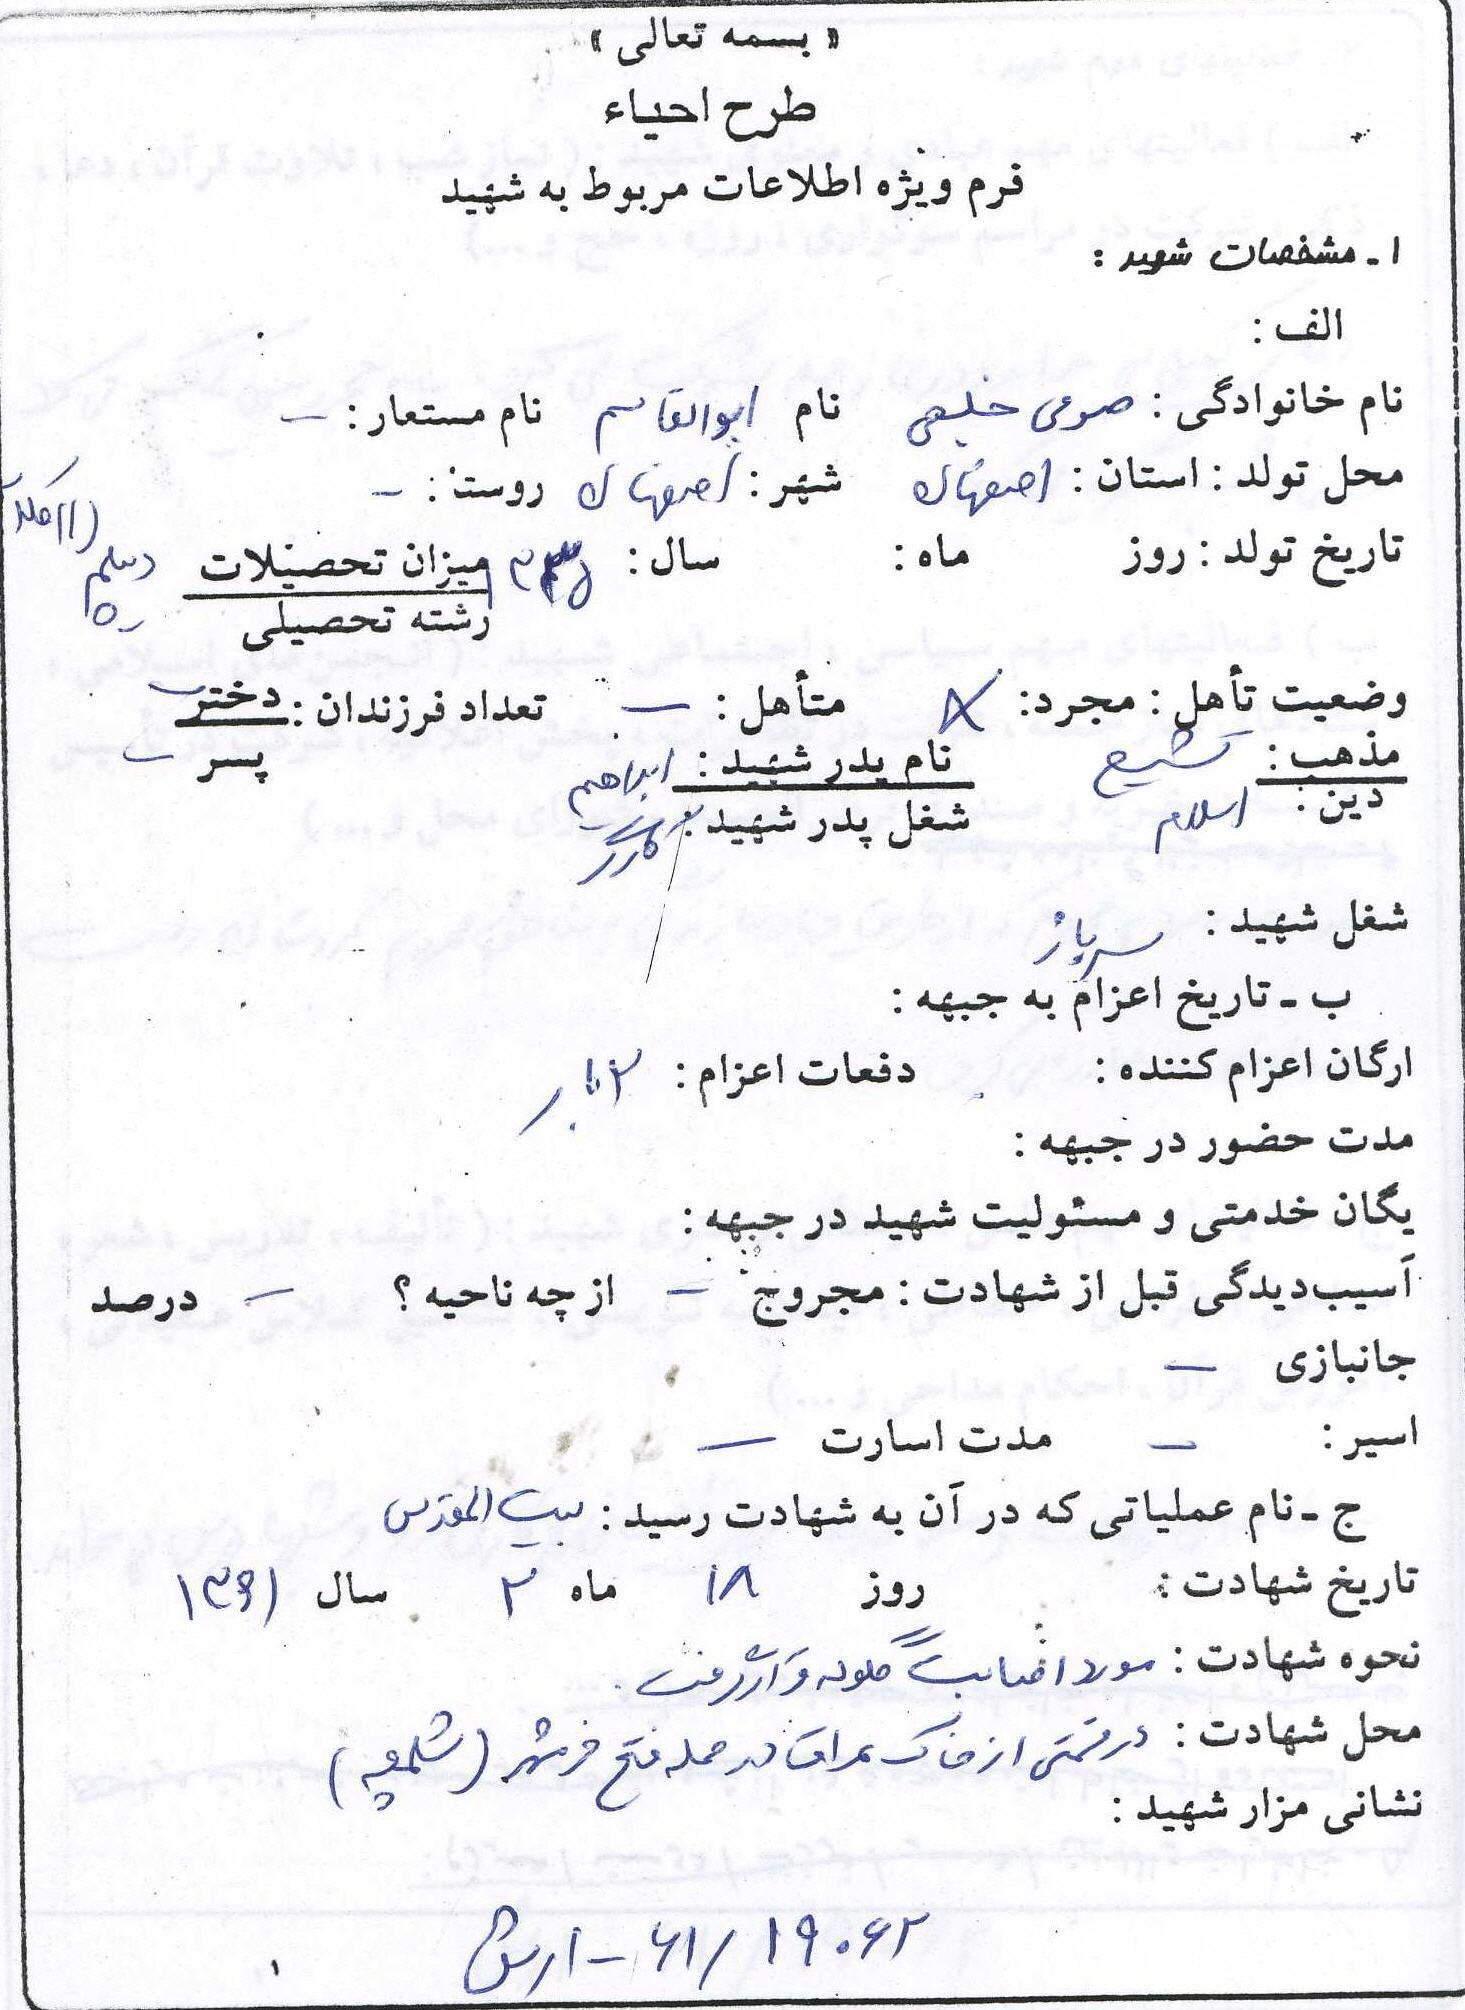 « بسمه تعالی »
طرح احیاء
فرم ویژه اطلاعات مربوط به شهید
۱ - مشخصات شهید :
الف :
نام خانوادگی : نام ابوالقاسم نام مستعار : -
محل تولد : استان : اصفهان شهر : اصفهان روستا : -
تاریخ تولد : روز ماه : سال : میزان تحصیلات دیپلم
رشته تحصیلی
وضعیت تأهل : مجرد : × متأهل : - تعداد فرزندان : دختر -
پسر -
مذهب : تشیع نام پدر شهید : ابراهیم
دین : اسلام شغل پدر شهید : کارگر
شغل شهید : سرباز
ب - تاریخ اعزام به جبهه :
ارگان اعزام کننده : دفعات اعزام : ۲ بار
مدت حضور در جبهه :
یگان خدمتی و مسئولیت شهید در جبهه :
آسیب‌دیدگی قبل از شهادت : مجروج - از چه ناحیه ؟ - درصد
جانبازی -
اسیر : - مدت اسارت -
ج - نام عملیاتی که در آن به شهادت رسید : بیت المقدس
تاریخ شهادت : روز ۱۸ ماه ۲ سال ۱۳۶۱
نحوه شهادت : مورد اصابت گلوله قرار گرفت .
محل شهادت : در قسمتی از خاک عراق در حمله فتح خرمشهر (شلمچه)
نشانی مزار شهید :
۶۱/۱۹۰۶۲ - ارتش